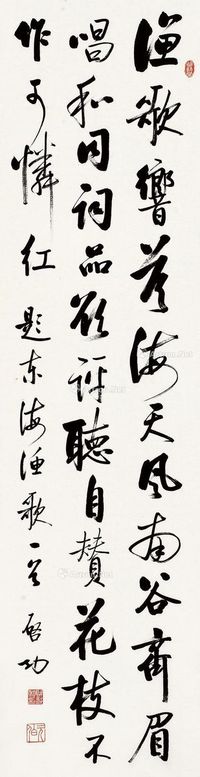 渔歌響答海天风南谷齊眉
唱和同词品欲评聽自赞花枝不
作可憐红 题东海渔歌一首 启功